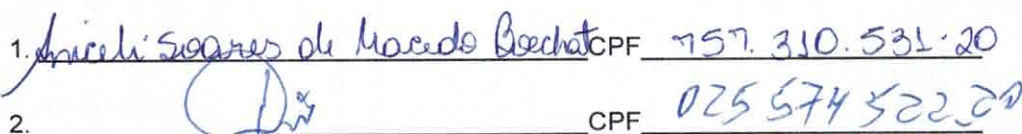 1. Aniceli Soares de Macedo Boechat CPF 757.310.531-20
2. CPF 025 574 522 20